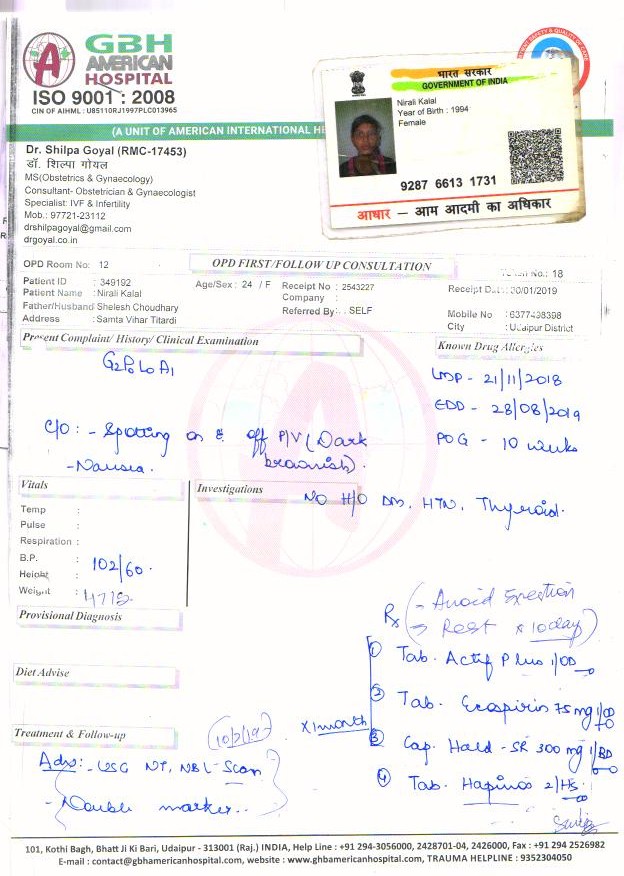 GBH
AMERICAN
HOSPITAL
ISO 9001 : 2008
CIN OF AIHML : U85110RJ1997PLC013965
(A UNIT OF AMERICAN INTERNATIONAL HE
भारत सरकार
GOVERNMENT OF INDIA
Nirali Kalal
Year of Birth : 1994
Female
9287 6613 1731
आधार – आम आदमी का अधिकार
Dr. Shilpa Goyal (RMC-17453)
डॉ. शिल्पा गोयल
MS(Obstetrics & Gynaecology)
Consultant- Obstetrician & Gynaecologist
Specialist: IVF & Infertility
Mob.: 97721-23112
drshilpagoyal@gmail.com
drgoyal.co.in
OPD Room No: 12
OPD FIRST/FOLLOW UP CONSULTATION
No.: 18
Patient ID : 349192
Age/Sex : 24 / F
Receipt No : 2543227
Receipt D : 30/01/2019
Patient Name : Nirali Kalal
Company :
Father/Husband Shelesh Choudhary
Referred By : SELF
Mobile No : 6377438398
Address : Samta Vihar Titardi
City : Udaipur District
Present Complaint/ History/ Clinical Examination
Known Drug Allergies
G2P0L0A1
LMP - 21/11/2018
EDD - 28/08/2019
POG - 10 weeks
C/O :- Spotting on & off P/V (Dark
brownish).
- Nausea.
Vitals
Investigations
NO H/O DM, HTN, Thyroid.
Temp :
Pulse :
Respiration :
B.P. : 102/60
Height :
Weight :
Provisional Diagnosis
Rx
- Avoid Exertion
→ Rest x 10day
Diet Advise
1 Tab. Actif Plus 1/OD
2 Tab. Ecospirin 75 mg 1/OD
x 1month
3 Cap. Hald - SR 300 mg 1/BD
4 Tab. Hapinos 2/HS
Treatment & Follow-up
(10/2/19)
Adv: - USG NT, NBL-Scan
- Double marker..
101, Kothi Bagh, Bhatt Ji Ki Bari, Udaipur - 313001 (Raj.) INDIA, Help Line : +91 294-3056000, 2428701-04, 2426000, Fax : +91 294 2526982
E-mail : contact@gbhamericanhospital.com, website : www.gbhamericanhospital.com, TRAUMA HELPLINE : 9352304050